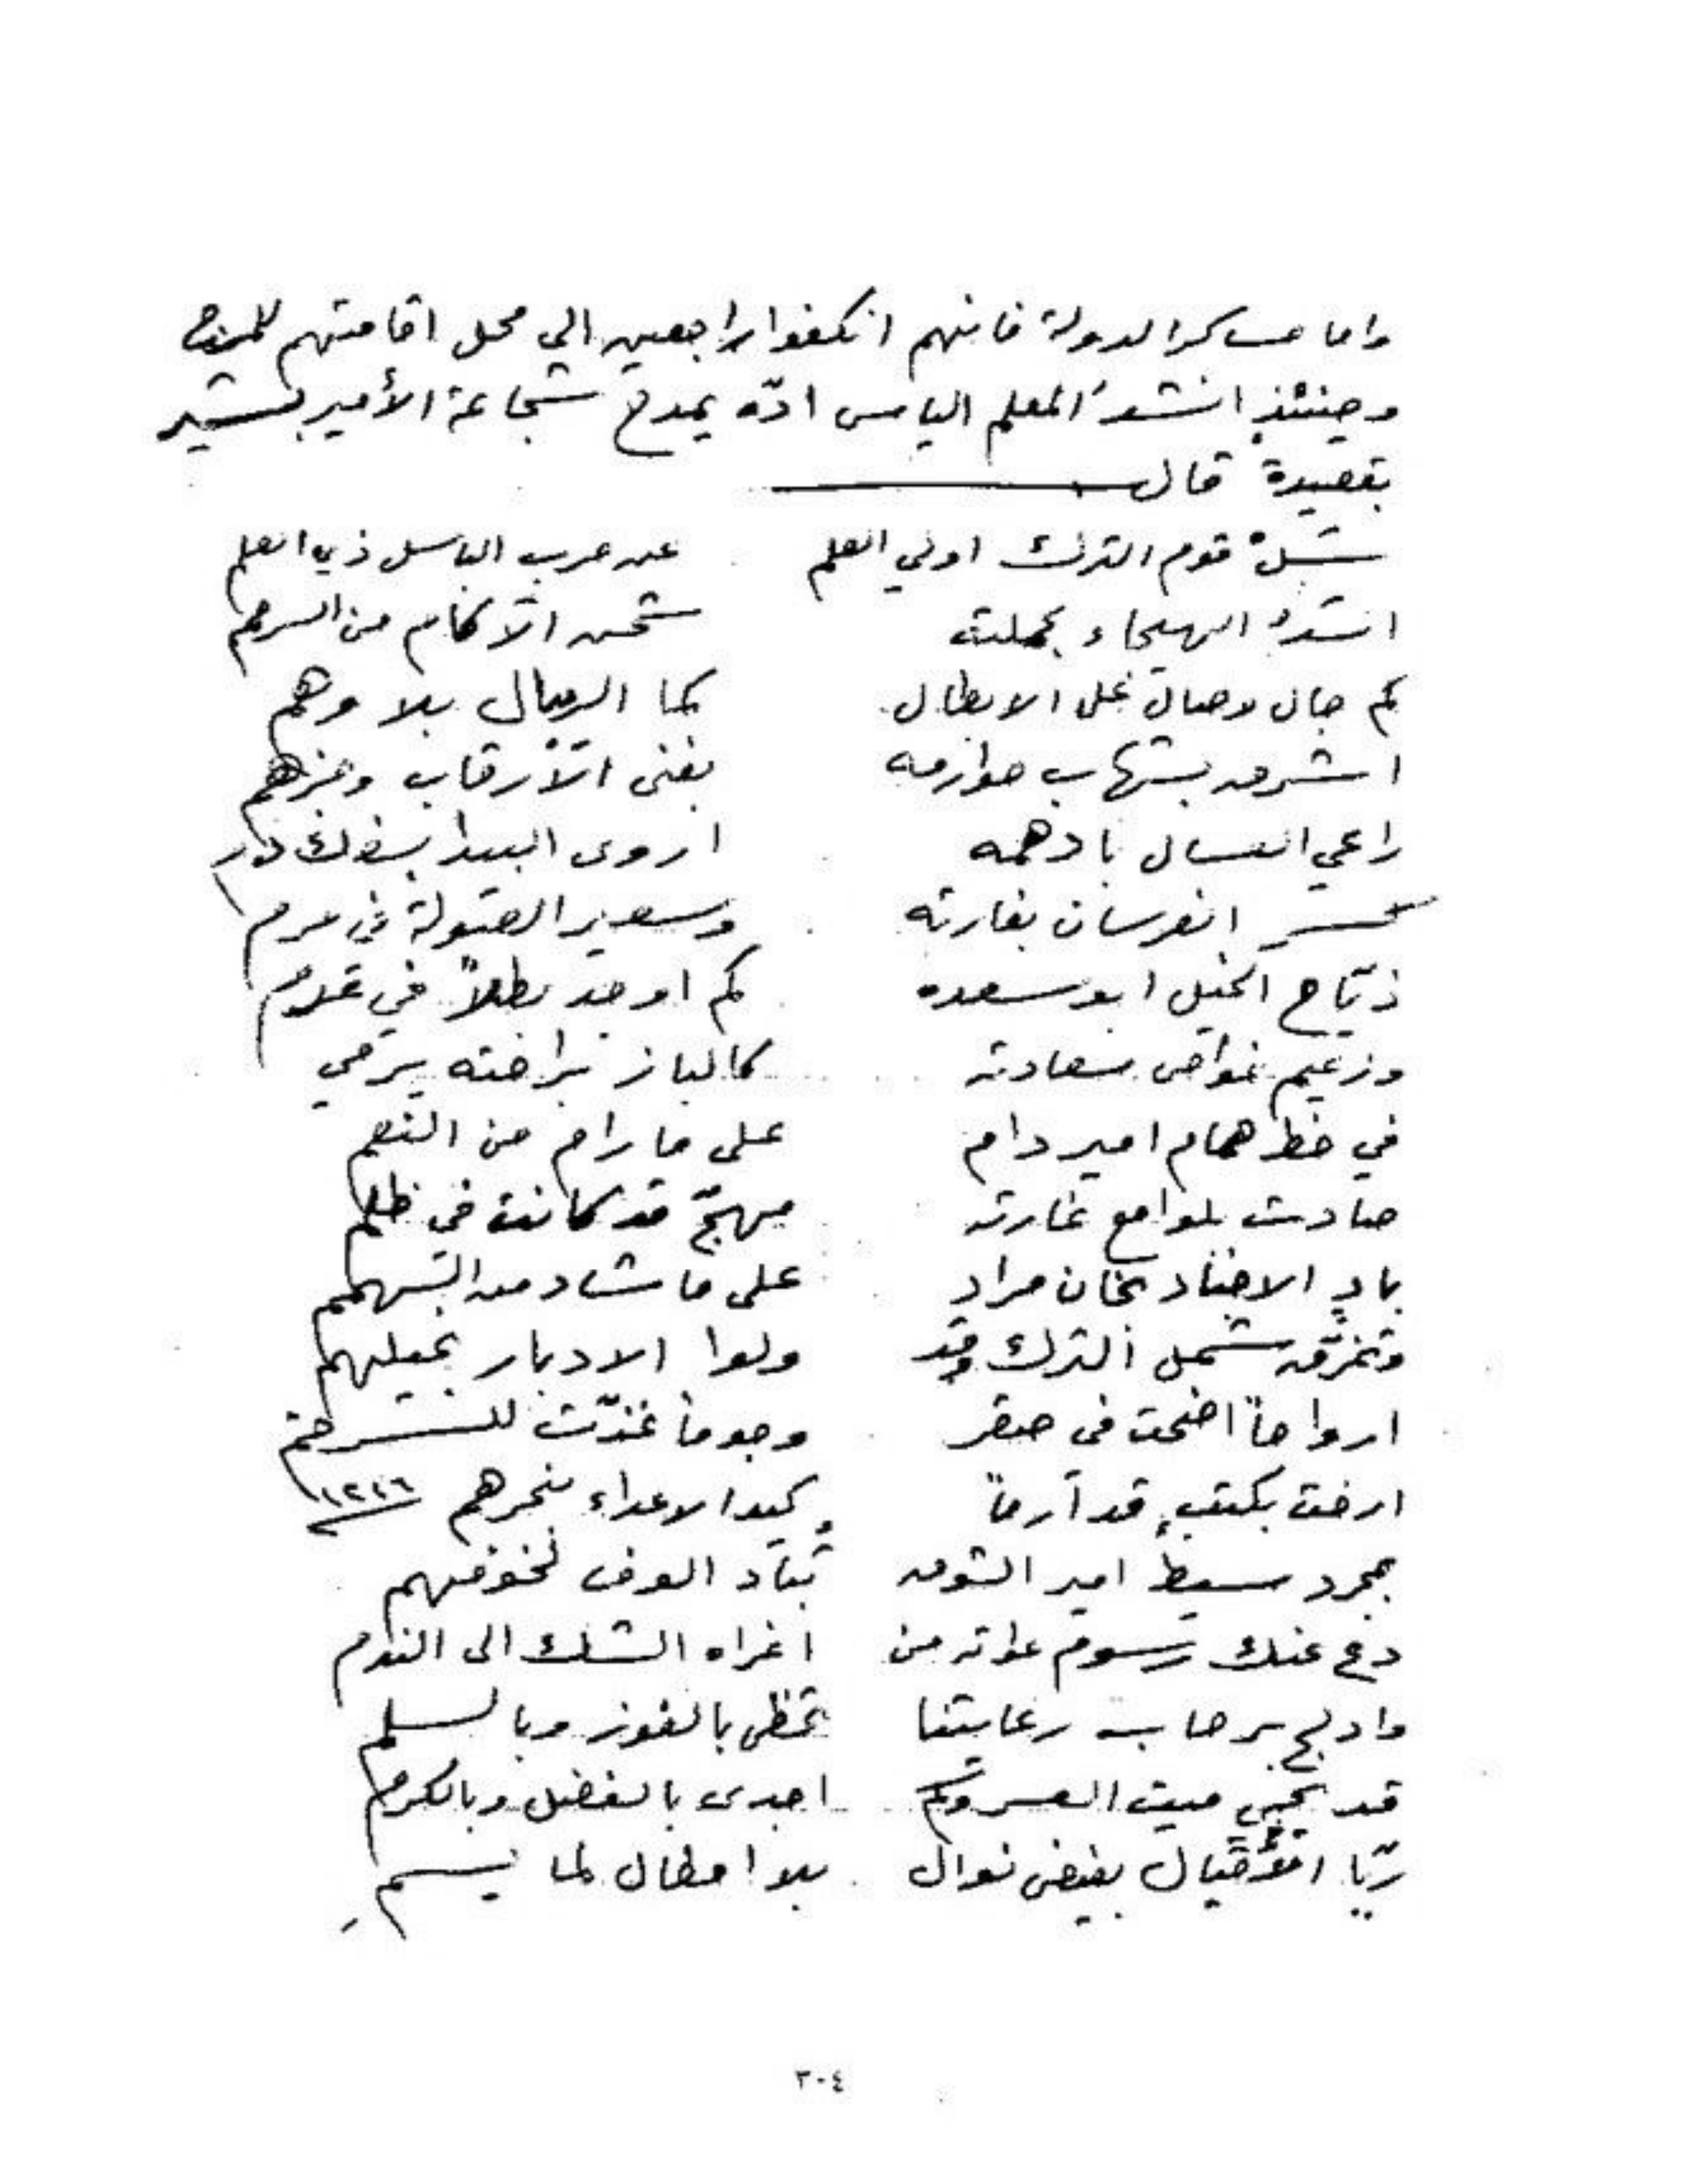 واما عساكر الدولة فانهم انكفوا راجعين الي محل اقامتهم للمرج
وحينئذٍ انشد المعلم الياس ادّه يمدح شجاعة الأمير بشير
بقصيدة قال
سَلْ قوم الترك اولي العلم عن حرب الباسل ذي العلم
اسدُ الهيجاء بحملته من السرهم
كم جال وصال على الابطال كما الريبال بلا وهم
اشرق بشهاب صوارمه بفنى الأرقاب
راعي العسال بادهمه اروى البيدا بسفك دم
الفرسان بغارته وسعير الصولة في ضرم
ذبّاح الخيل ابو سعده كم اوجد بطلاً في عدم
وزعيم غواص سعادته كالباز براحته يرمي
في حظ همام امير دام على ما رام من النعم
صادت بلوامع غارته مهجٌ قد كانت في ظلم
باد الاجناد بخان مراد على ما شاد من
وتمزّق شمل الترك وقد ولوا الادبار بجيلهم
ارواحاً اضحت في صقر
ارخت بكتبٍ قد كيد الاعداء بنحرهم
بمجرد سيط امير الشوف تباد الوف لخوفهم
دع عنك رسوم عداته من اغراه الشك الى الندم
وادلج برحاب رعايتنا تحظى بالفوز وبالسلم
قد يحيي ميت العسر وكم اجدى بالفضل وبالكرم
ربّا الأقيال بفيض نوال بلا امطال لما يسم
٣٠٤